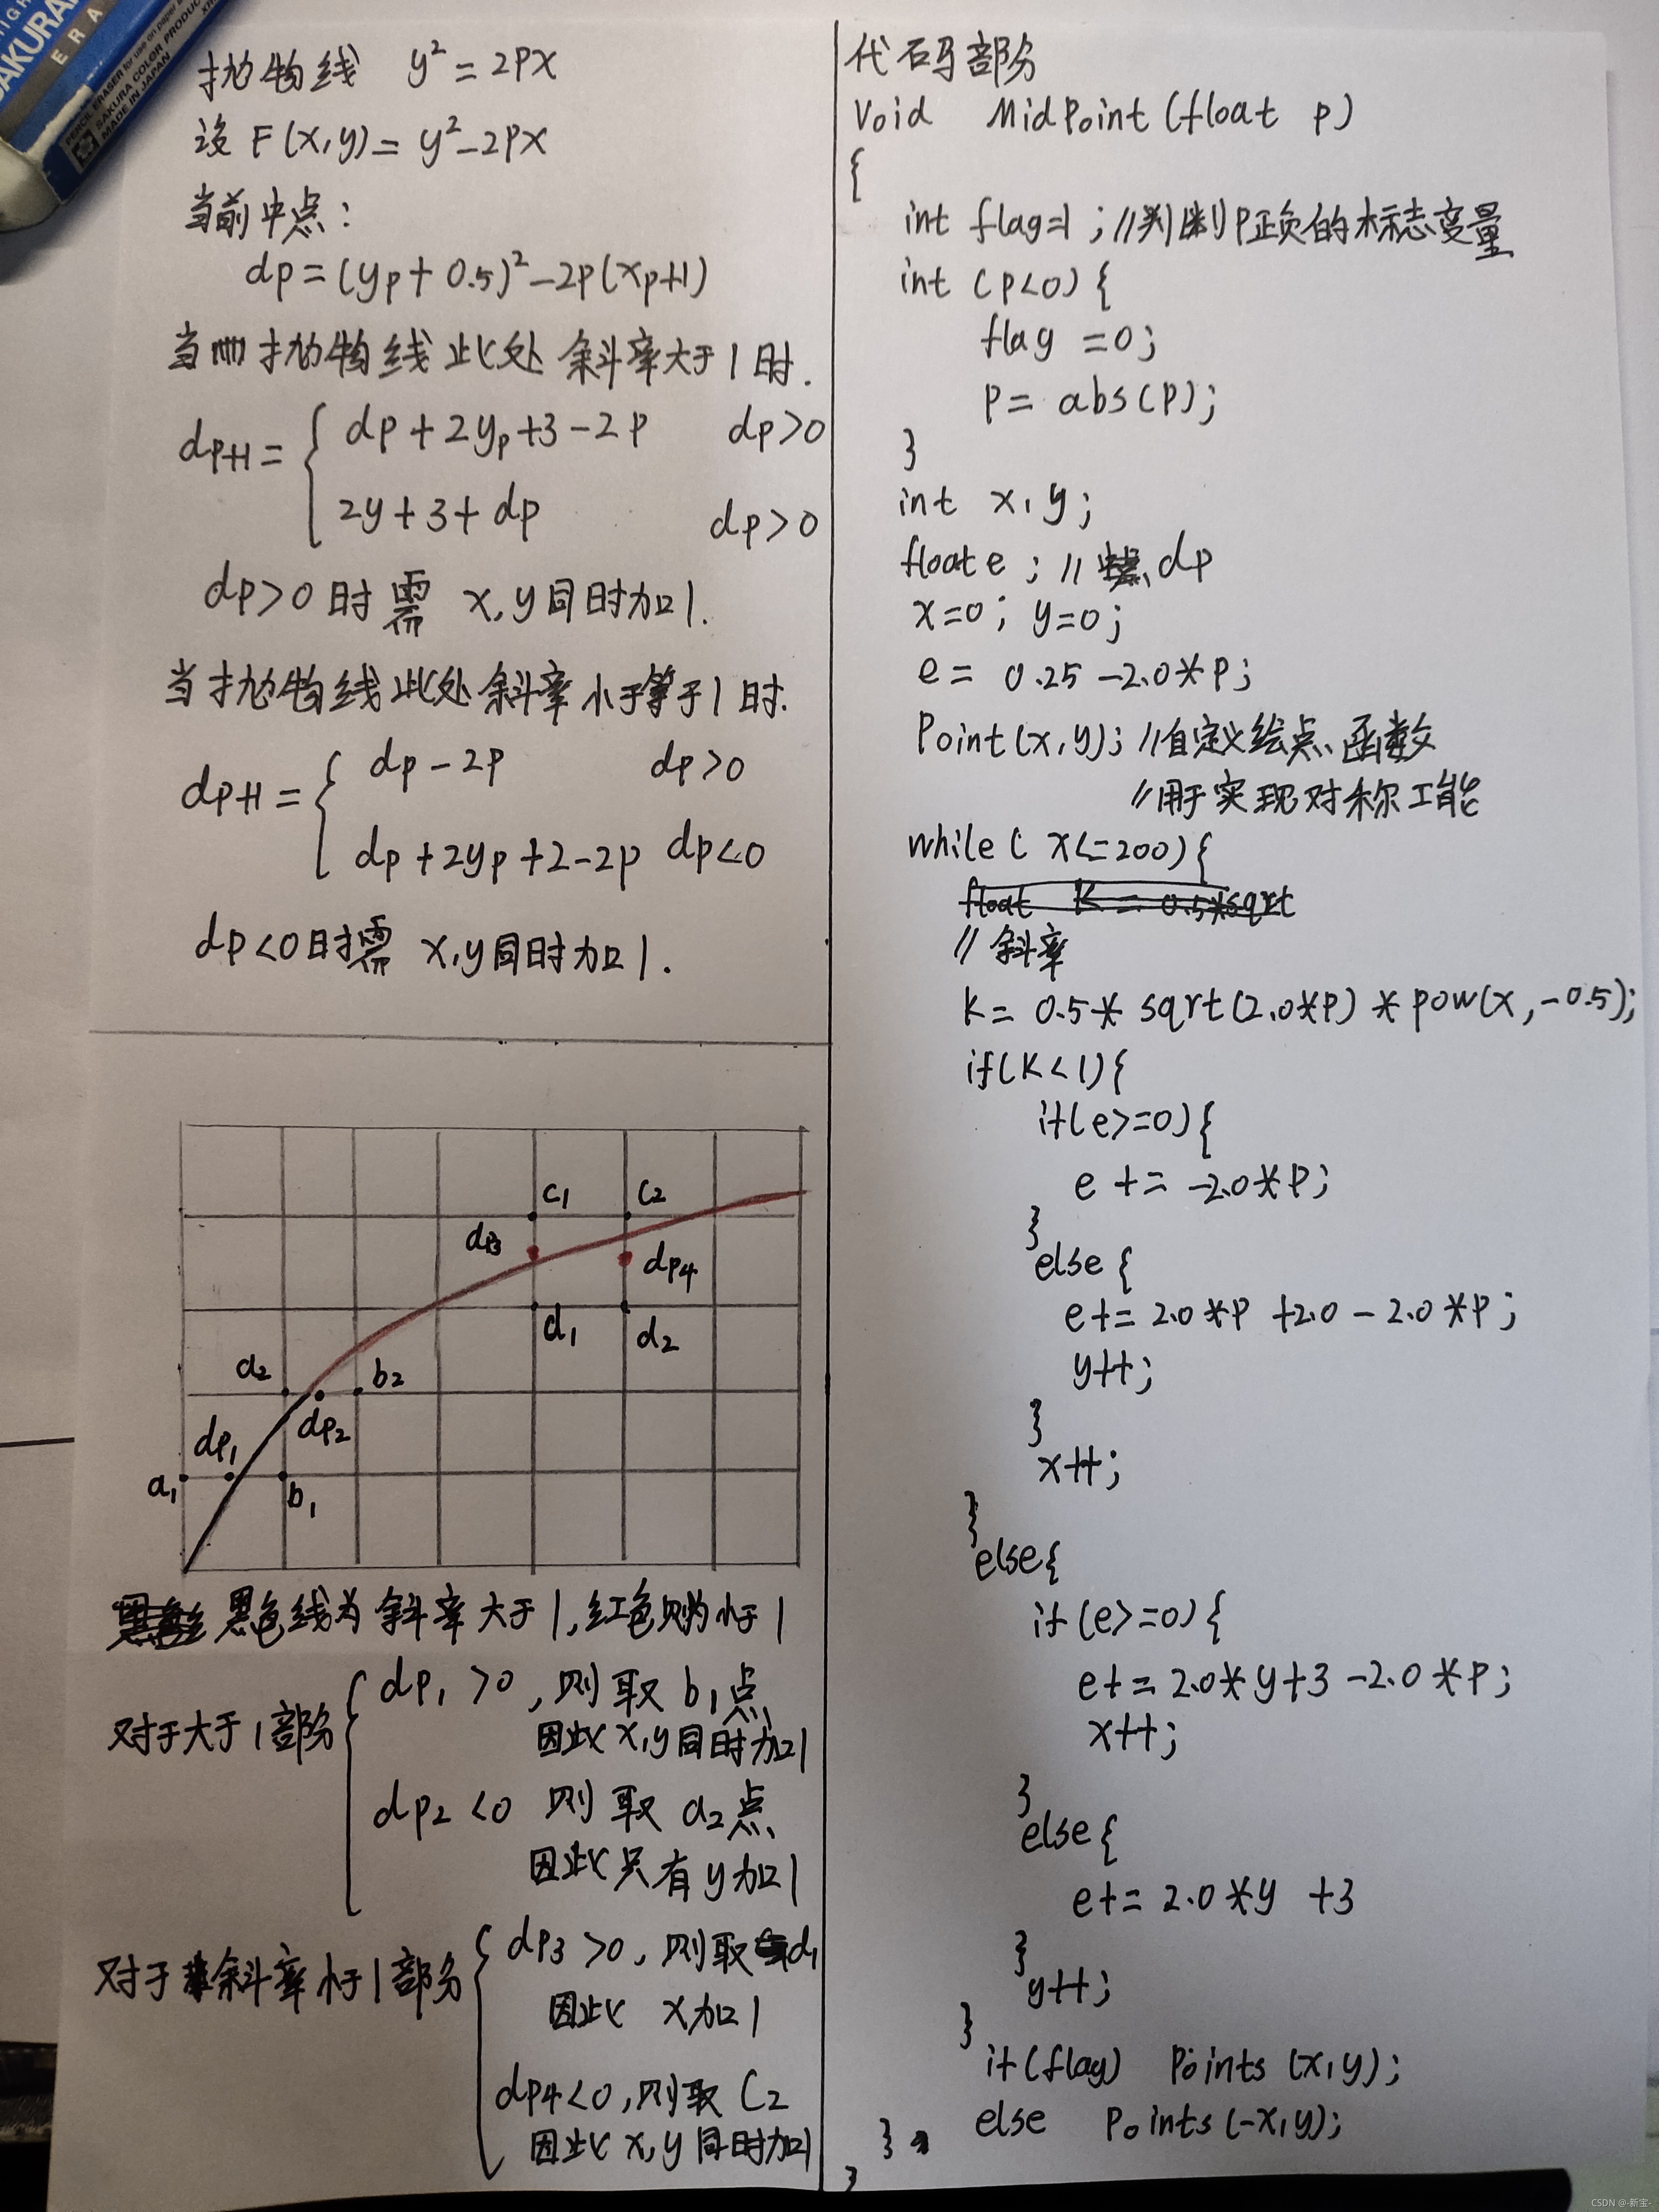 SAKURA
ERA
PENCIL ERASER for use on paper
SAKURA COLOR PRODUC
MADE IN JAPAN
抛物线 y² = 2Px
设 F(x,y) = y² - 2Px
当前中点:
dp = (yp + 0.5)² - 2p(xp+1)
当抛物线此处斜率大于1时.
dp+1 = { dp + 2yp + 3 - 2P dp>0
2y + 3 + dp dp>0
dp>0时需 x,y同时加1.
当抛物线此处斜率小于等于1时.
dp+1 = { dp - 2p dp>0
dp + 2yp + 2 - 2p dp<0
dp<0时需 x,y同时加1.
c1 c2
dp3 dp4
d1 d2
a2 b2
dp1 dp2
a1 b1
黑色线为斜率大于1,红色则为小于1
对于大于1部分 { dp1 >0, 则取 b1点
因此x,y同时加1
dp2 <0 则取 a2点
因此只有y加1
对于斜率小于1部分 { dp3 >0, 则取d1
因此 x加1
dp4<0, 则取 C2
因此 x,y同时加1
代码部分
Void MidPoint(float p)
{
int flag=1; //判断P正负的标志变量
int (p<0){
flag =0;
P= abs(P);
}
int x,y;
float e; //中点 dp
x=0; y=0;
e= 0.25 -2.0*P;
Point(x,y); //自定义绘点函数
//用于实现对称工能
while( x<=200){
float K = 0.5*sqrt
//斜率
K= 0.5* sqrt(2.0*P) * pow(x,-0.5);
if(K<1){
if(e>=0){
e += -2.0*P;
}
else{
e+= 2.0*P +2.0 - 2.0*P;
y++;
}
x++;
}
else{
if(e>=0){
e+= 2.0*y+3 -2.0*P;
x++;
}
else{
e+= 2.0*y +3
}
y++;
}
if(flag) Points(x,y);
else Points(-x,y);
}
}
CSDN @-新宝-